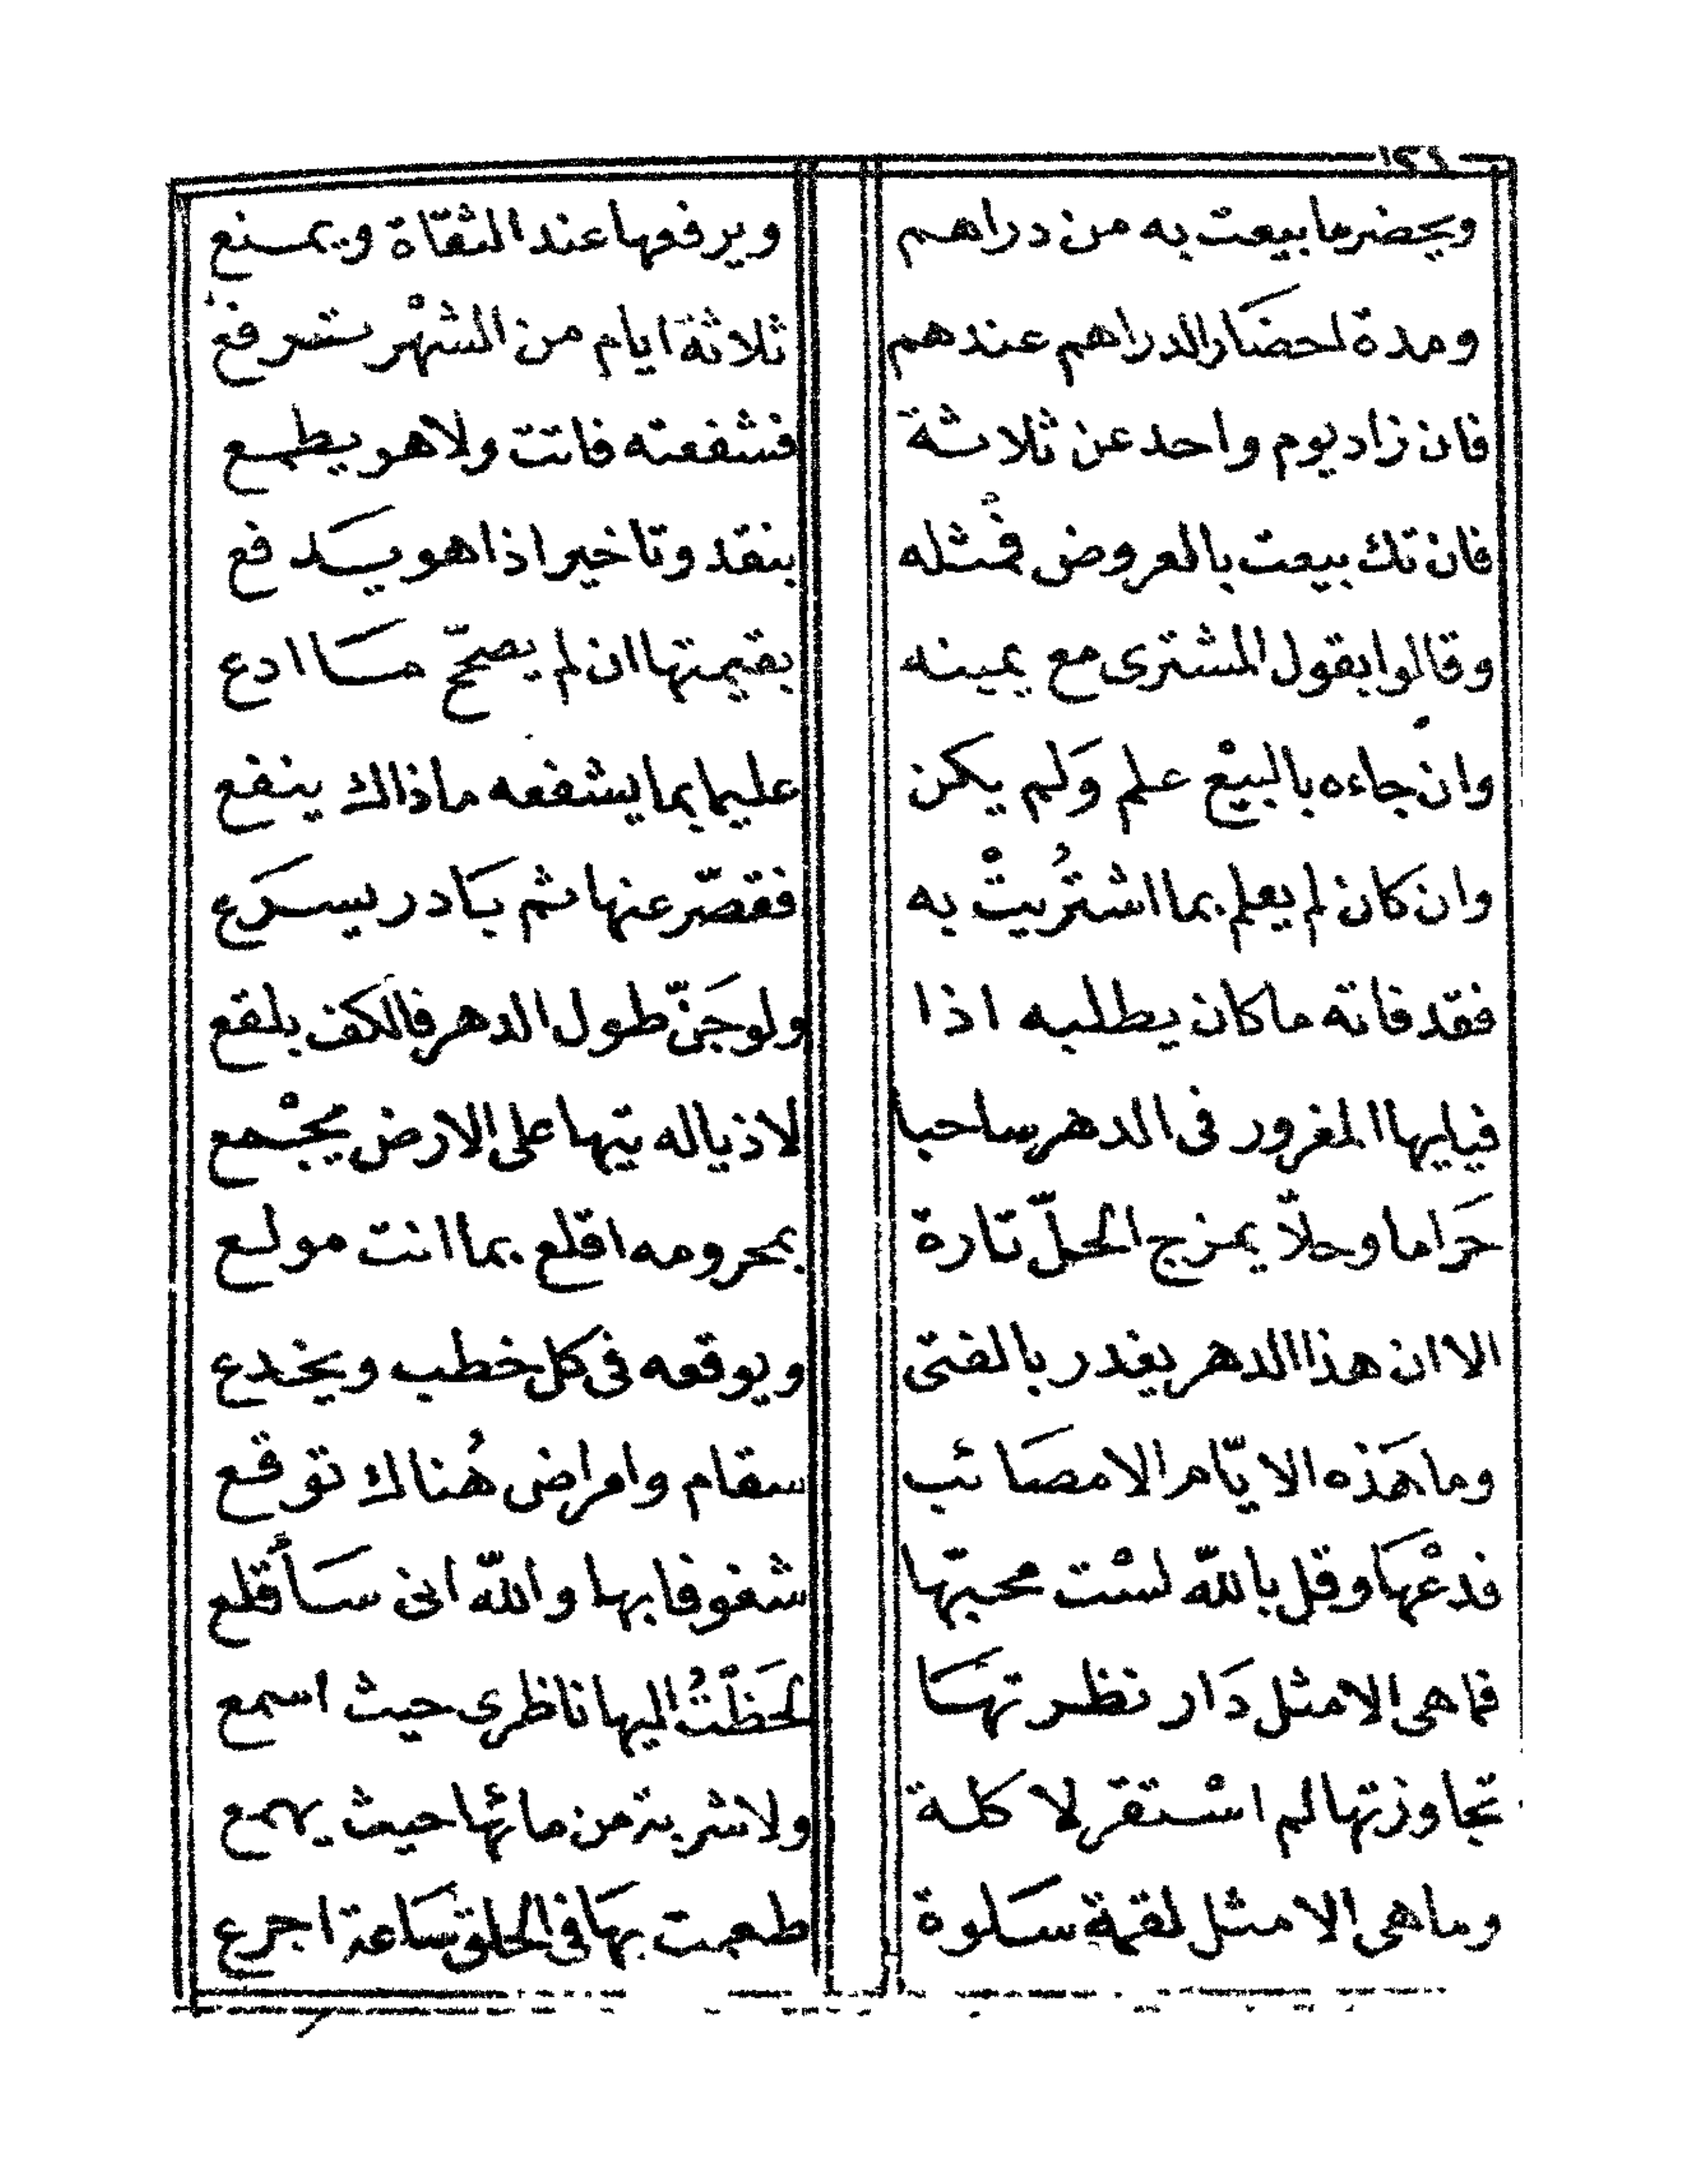 ويحضر ما بيعت به من دراهم ويرفعها عند الثقاة ويمنع
ومدة احضار الدراهم عندهم ثلاثة ايام من الشهر تشرفع
فان زاد يوم واحد عن ثلاثة فشفعته فاتت ولا هو يطمع
فان تك بيعت بالعروض فمثله بنقد وتاخير اذا هو يَدفع
وقالوا بقول المشترى مع يمينه بقيمتها ان لم يصحّ مَا ادع
وان جاءه بالبيْع علم وَلم يكن عليما بما يشفعه ماذاك ينفع
وان كان لم يعلم بما اشتُريتْ به فقصّر عنها ثم بَادر يسرَع
فقد فاته ما كان يطلبه اذا ولو جَنّ طول الدهر فالكف بلقع
فيا ايها المغرور فى الدهر ساحبا لاذياله تيها على الارض يجْمع
حَراما وحلاّ يمزج الحلّ تارة بمحرومه اقلع بما انت مولع
الا ان هذا الدهر يغدر بالفتى ويوقعه فى كل خطب ويخدع
وما هَذه الايّام الا مصَائب سقام وامراض هُناك توقع
فدعْهَا وقل بالله لسْت محبّها شغوفا بها والله انى سَأقلع
فما هى الا مثل دَار نظرتهَا لحَظْتُ اليها ناظرى حيث اسمع
تجاوزتها لم اسْتقر لاكلة ولا شربة من مائها حيث يهمع
وما هى الا مثل لقمة سَلوة طعمت بهَا فى الحلق سَاعة اجرع